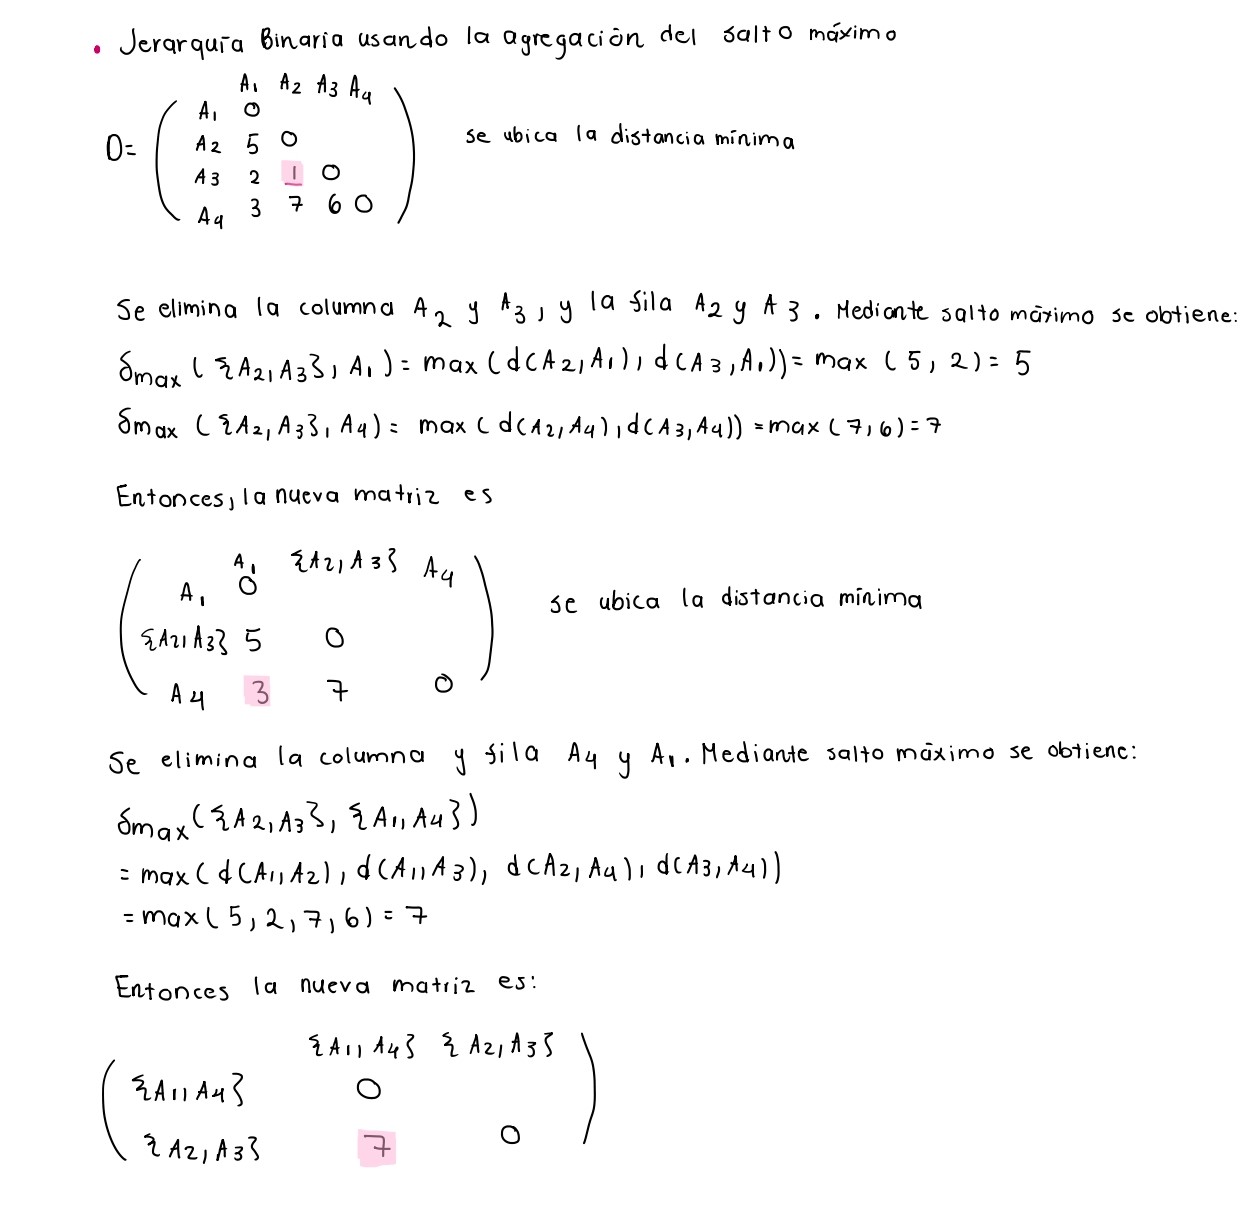 • Jerarquía Binaria usando la agregación del salto máximo
A1 A2 A3 A4
A1 0
D= A2 5 0 se ubica la distancia mínima
A3 2 1 0
A4 3 7 6 0
Se elimina la columna A2 y A3, y la fila A2 y A3. Mediante salto máximo se obtiene:
δmax ({A2,A3}, A1) = max (d(A2,A1), d(A3,A1)) = max (5, 2) = 5
δmax ({A2,A3}, A4) = max (d(A2,A4), d(A3,A4)) = max (7,6) = 7
Entonces, la nueva matriz es
A1 {A2,A3} A4
A1 0
{A2,A3} 5 0 se ubica la distancia mínima
A4 3 7 0
Se elimina la columna y fila A4 y A1. Mediante salto máximo se obtiene:
δmax ({A2,A3}, {A1,A4})
= max (d(A1,A2), d(A1,A3), d(A2,A4), d(A3,A4))
= max (5, 2, 7, 6) = 7
Entonces la nueva matriz es:
{A1,A4} {A2,A3}
{A1,A4} 0
{A2,A3} 7 0